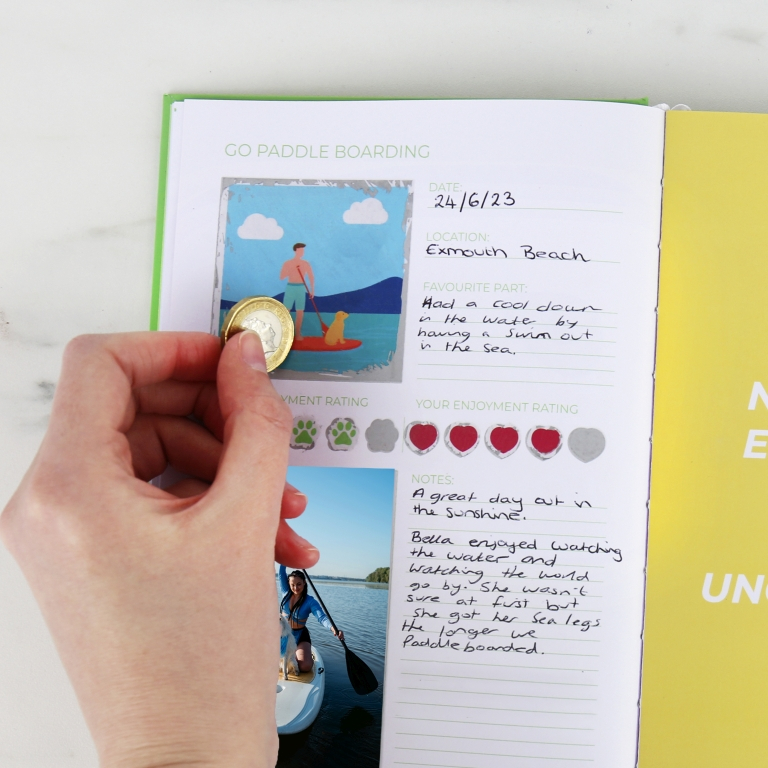 GO PADDLE BOARDING
DATE:
24/6/23
LOCATION:
Exmouth Beach
FAVOURITE PART:
Had a cool down
in the water by
having a swim out
in the sea.
YMENT RATING
YOUR ENJOYMENT RATING
NOTES:
A great day out in
the sunshine.
Bella enjoyed watching
the water and
watching the world
go by. She wasn't
sure at first but
She got her sea legs
the longer we
Paddleboarded.
N
E
UN